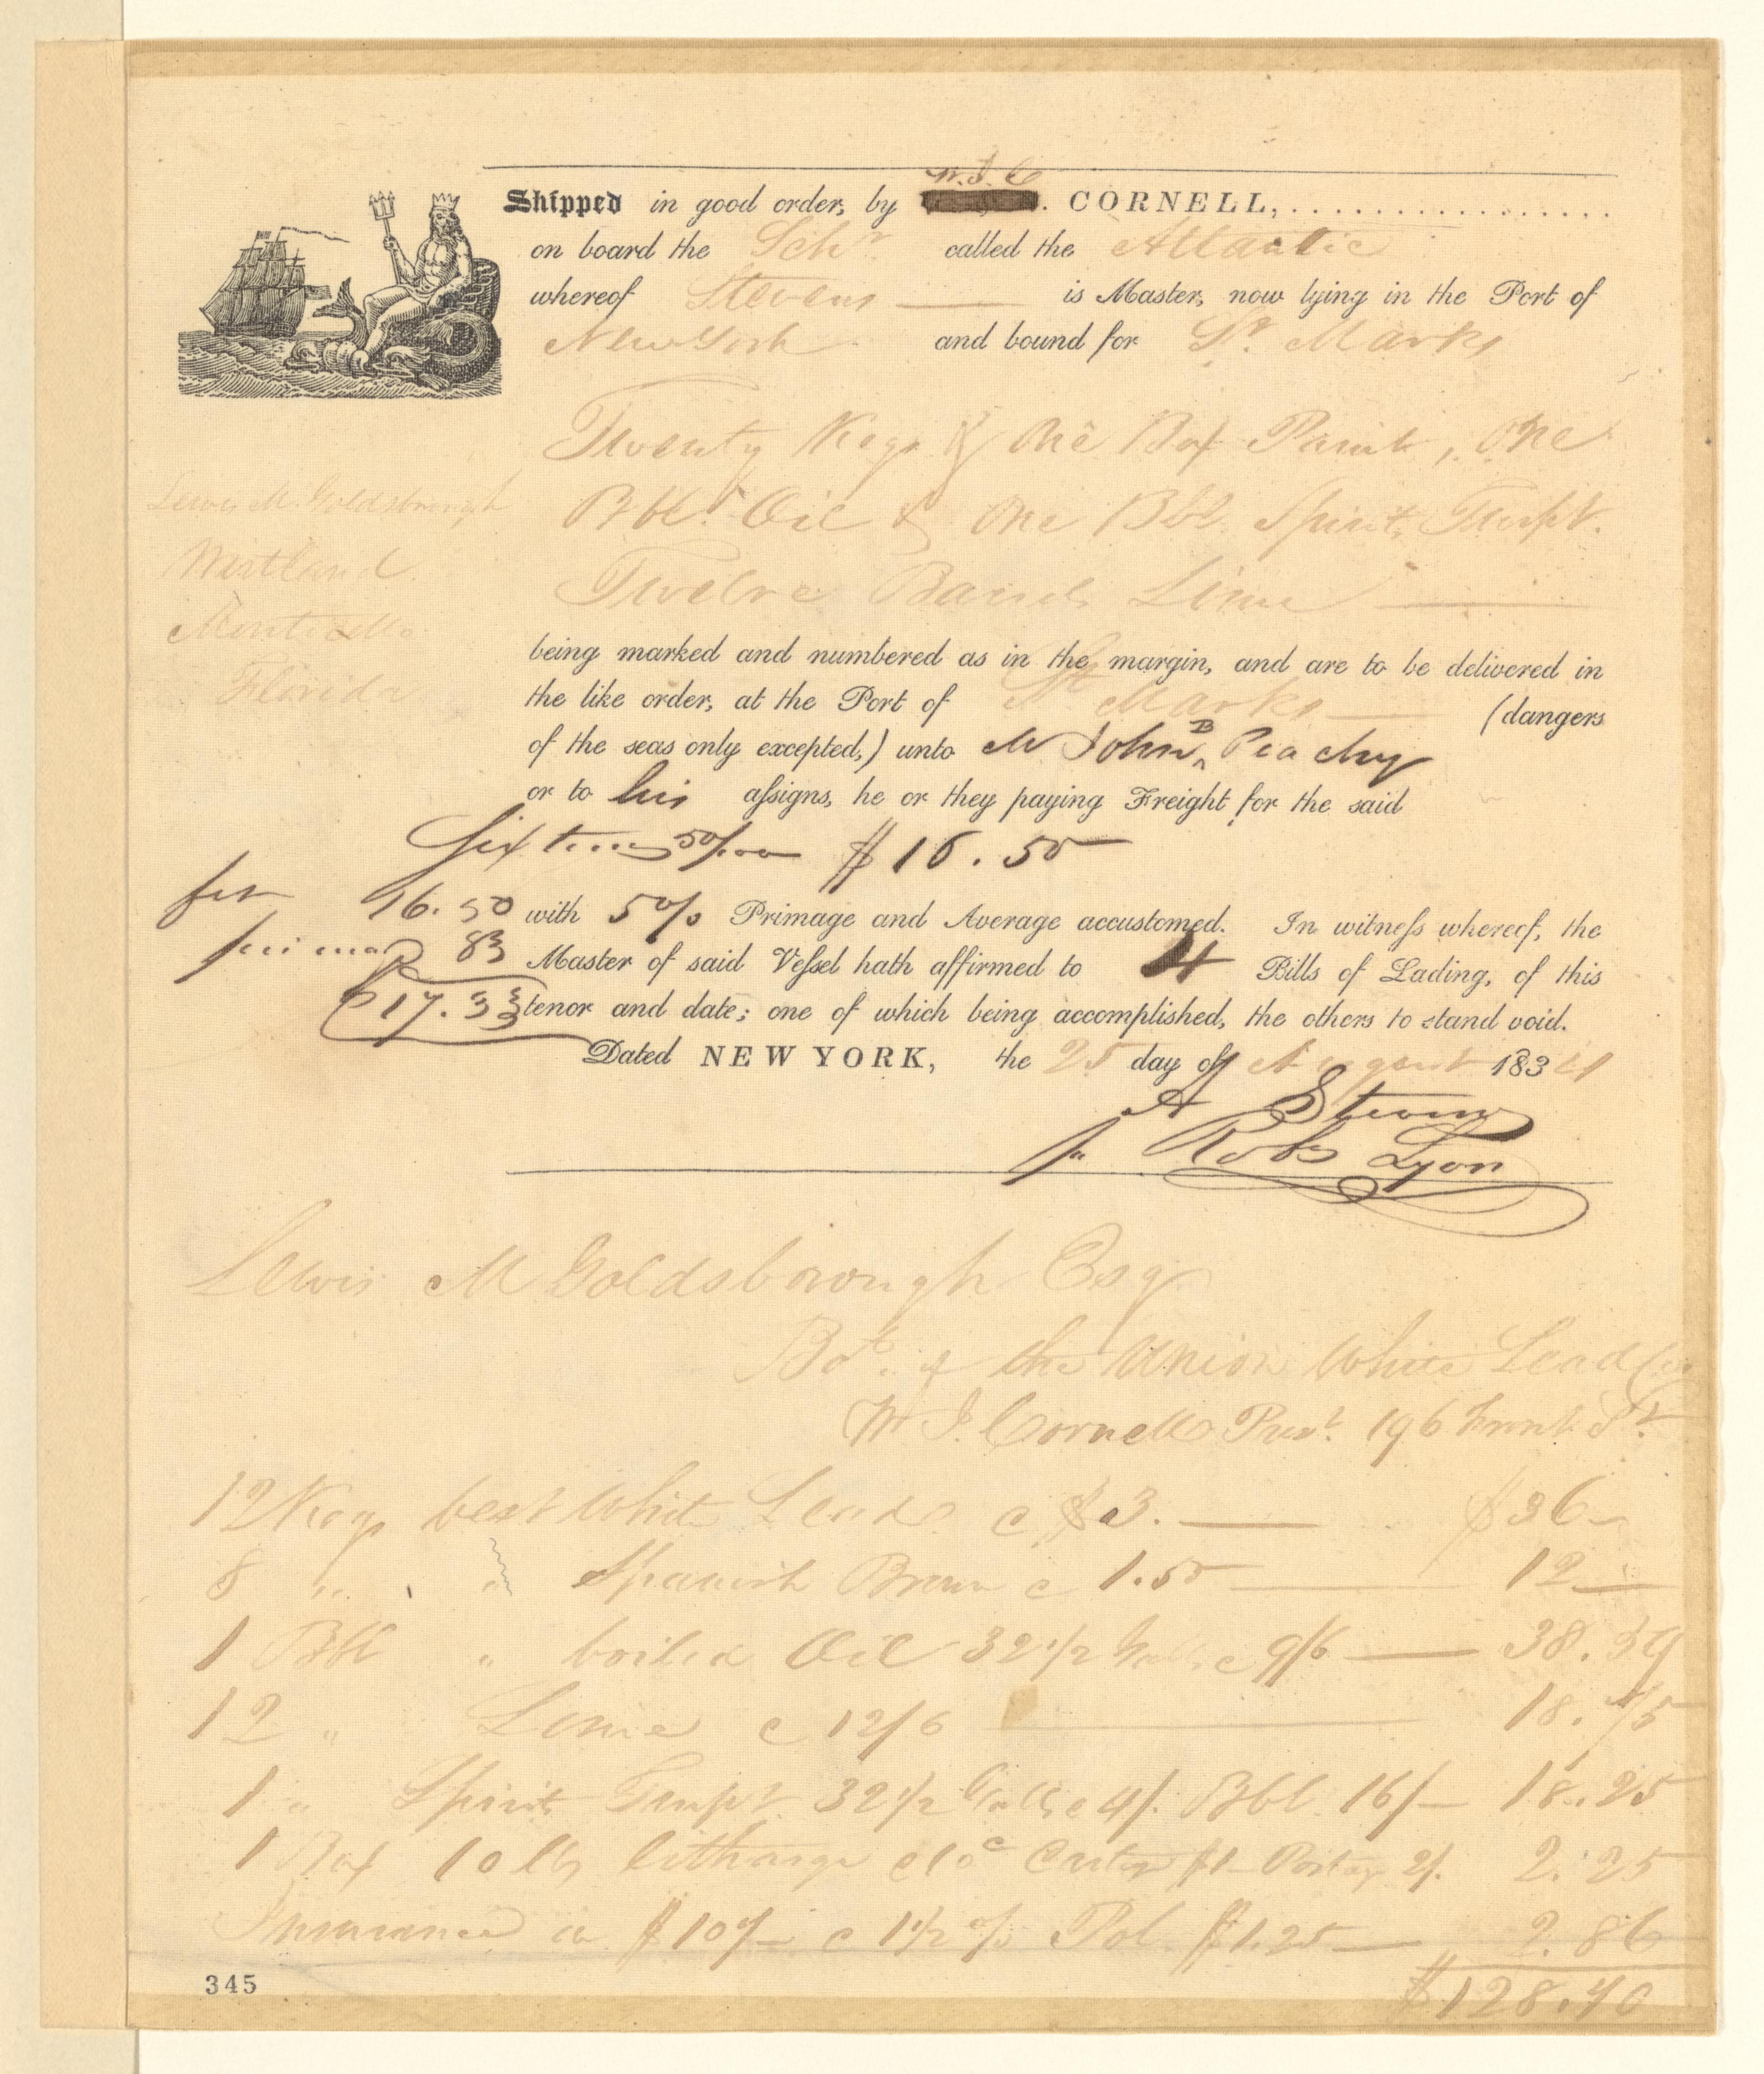 W. J. C
Shipped in good order, by . CORNELL,
on board the Schr called the Atlantic
whereof Stevens — is Master, now lying in the Port of
New York and bound for St. Marks
Twenty Kegs & One Box Paint, One
Bbl. Oil & One Bbl. Spirits Turpt.
Twelve Barrels Lime —
Lewis M. Goldsborough
Wirtland
Monticello
Florida
being marked and numbered as in the margin, and are to be delivered in
the like order, at the Port of St Marks — (dangers
of the seas only excepted,) unto M John B Peachy
or to his assigns, he or they paying Freight for the said
Sixteen 50/100 $16.50
16.50 with 5 % Primage and Average accustomed. In witness whereof, the
83 Master of said Vessel hath affirmed to 4 Bills of Lading, of this
$17.33 tenor and date; one of which being accomplished, the others to stand void.
Dated NEW YORK, the 25 day of August 183
A Stevens
pr Robt Lyon
Lewis M Goldsborough Esq
Bot. of the Union White Lead Co
W J. Cornell Prest. 196 Front St.
12 Kegs best White Lead @ $3. — $36—
8 " " Spanish Brown @ 1.50 — 12—
1 Bbl " boiled Oil 32 1/2 Galls @ 9/6 — 38.59
12 " Lime @ 12/6 — 18.75
1 " Spirits Turpt. 32 1/2 Galls @ 4/. Bbl. 16/— 18.25
1 Box 10 lbs litharge @ 10c Cartage $1— Postage 2/. 2.25
Insurance on $107— @ 1 1/2 % Pol. $1.25 — 2.86
$128.70
345